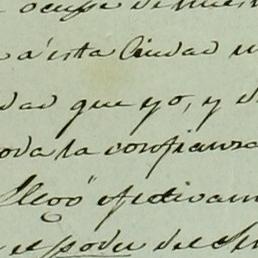 ocupe de nues
a esta Ciudad
dad que yo, y
toda la confianza
llegó efectivam
el poder del